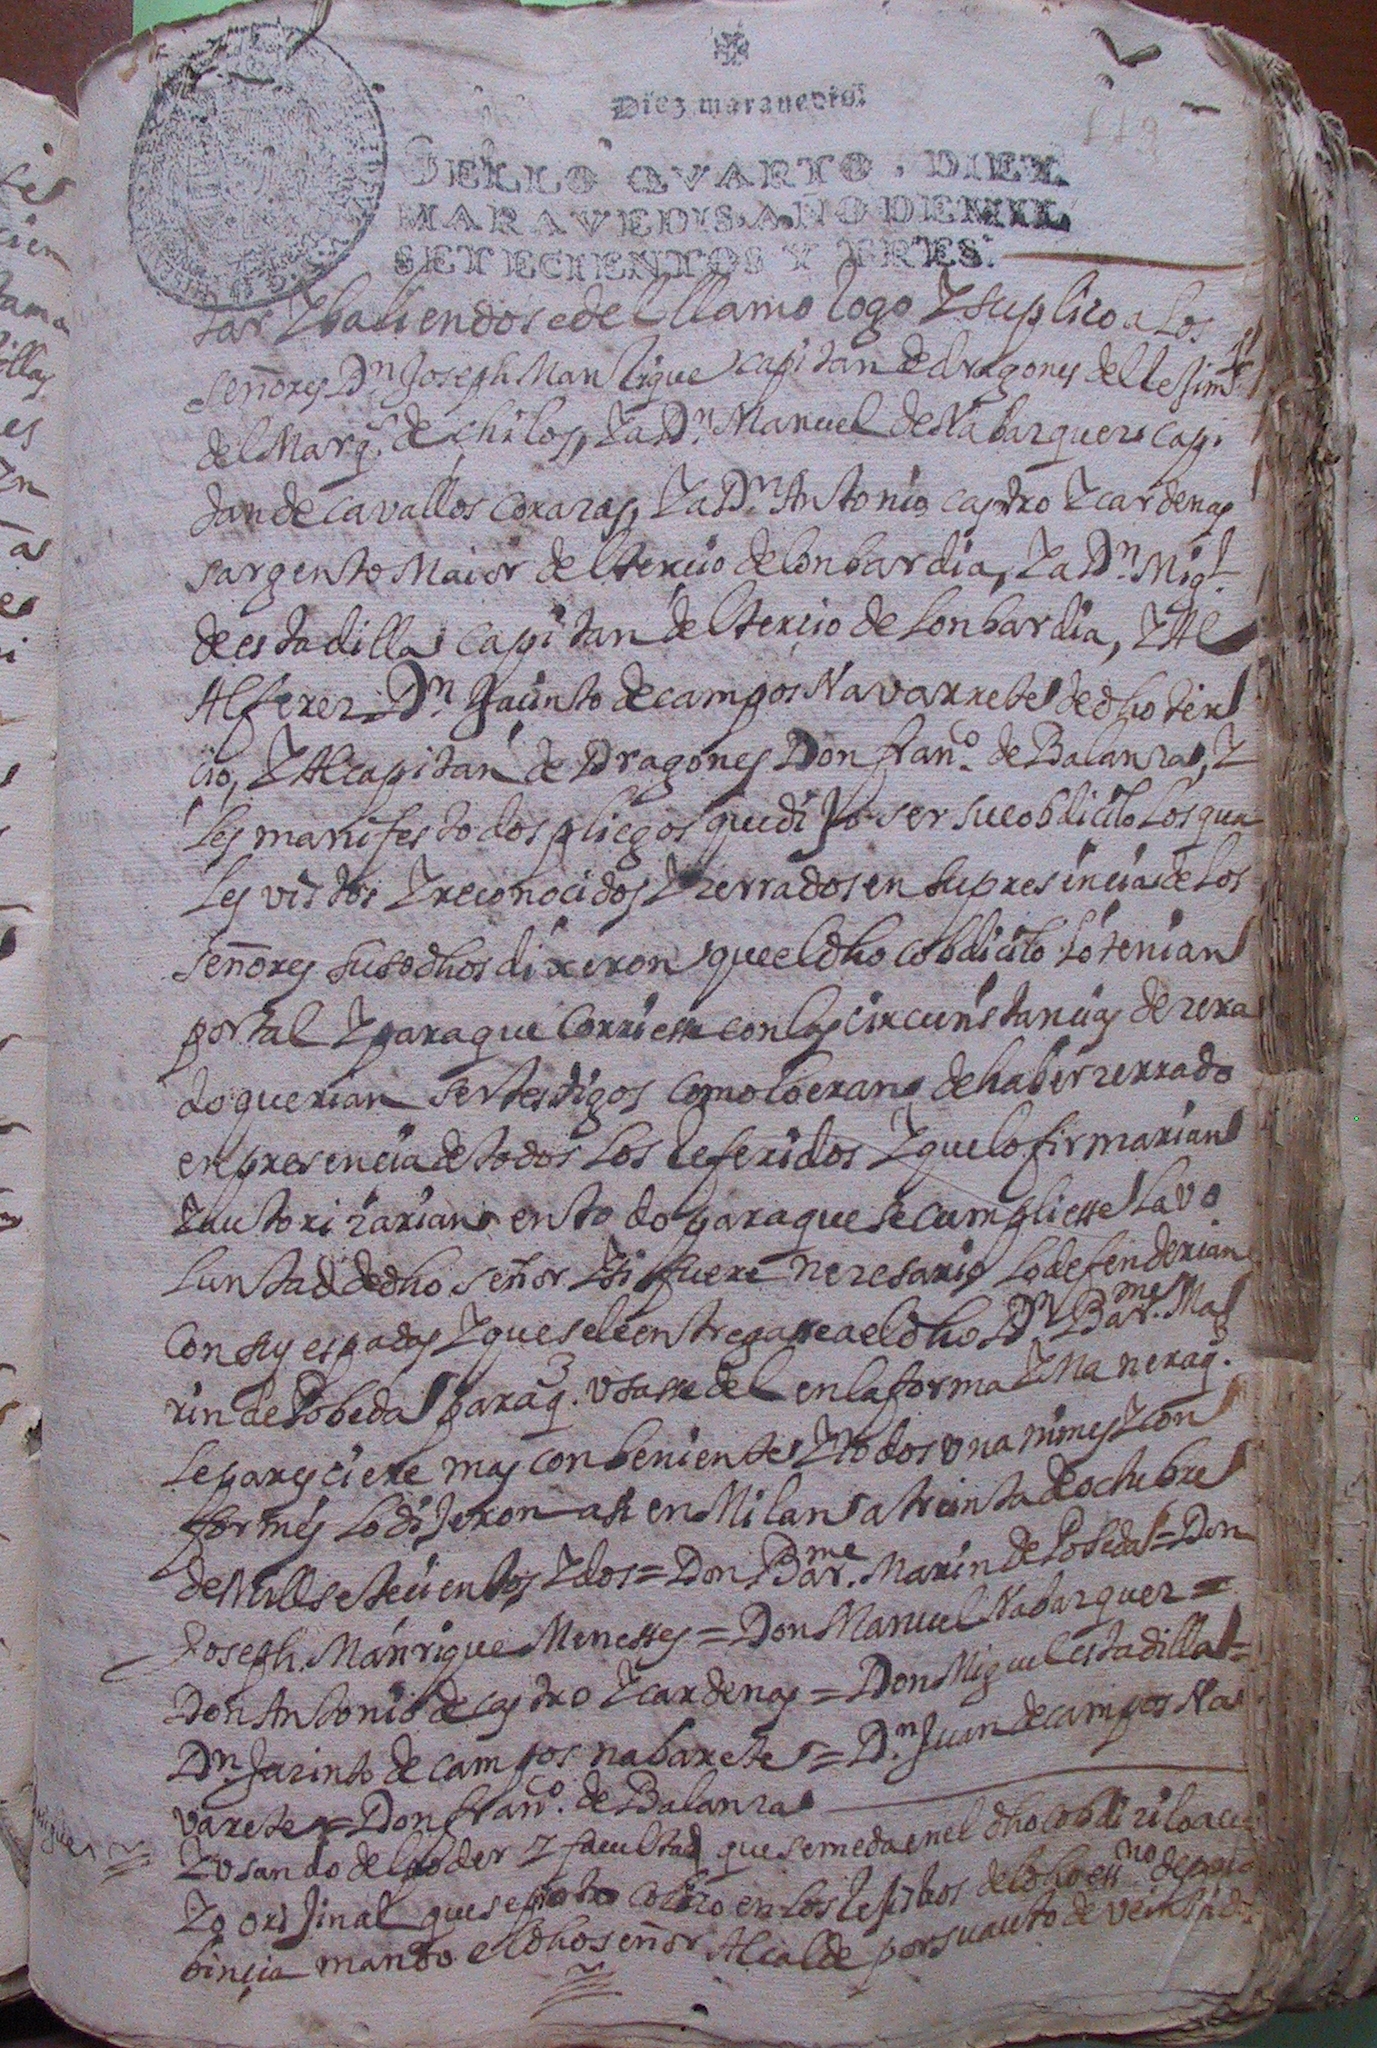 Diez maravedis
SELLO QVARTO, DIEZ
MARAVEDIS, AÑO DE MIL
SETECIENTOS Y TRES.
tar Y baliendose del llamo logo Y suplico a Los
señores Dn Joseph Manrique capitan de dragones del
del Marqs. de chilos, Y a Dn. Manuel de Nabarquer capi
tan de cavallos corazas, Y a Dn. Antonio castro Y cardenas
sargento Maior del tercio de lonbardia, Y a Dn. Migl.
de estadilla capitan del tercio de Lonbardia, Y Al
Alferez Dn. Jacinto de campos Navarrete de dho ter
cio, Y Al capitan de Dragones Don franco. de Balanza, Y
les manifesto dos pliegos que dijo ser su cobdicilo Los qua
Les vistos Y reconocidos Y zerrados en su presencia de Los
señores susodhos dixeron que el dho cobdicilo Lo tenian
por tal Y para que Corriesse con las circunstancias de zerra
do querian ser testigos como lo eran de haber zerrado
en presencia de todos Los Referidos Y que lo firmarian
Y autorizarian en todo para que se cumpliesse La vo
Luntad de dho señor Y si fuere nezesario Lo defenderian
Con sus espadas Y que se le entregasse a el dho Dn Barme. Ma
rin de Pobeda para q. vsasse del en la forma Y Manera q.
Le pareciere mas conbeniente Y todos vnanimes Y con
formes Lo dijeron assi en Milan a treinta de octubre
de Mill setecientos Y dos = Don Barme. Marin de Pobeda = Don
Joseph Manrique Menesses = Don Manuel Nabarquer =
Don Antonio de castro Y cardenas = Don Miguel estadilla =
Dn. Jazinto de campos nabarete = Dn. Juan de campos Na
varete = Don franco. de Balanza
Y vsando del poder Y facultad que se me da en el dho cobdizilo
Yo orijinal que se en los rejistros del dho essno. de
bincia mando el dho señor Alcalde por su auto de veinte Y dos